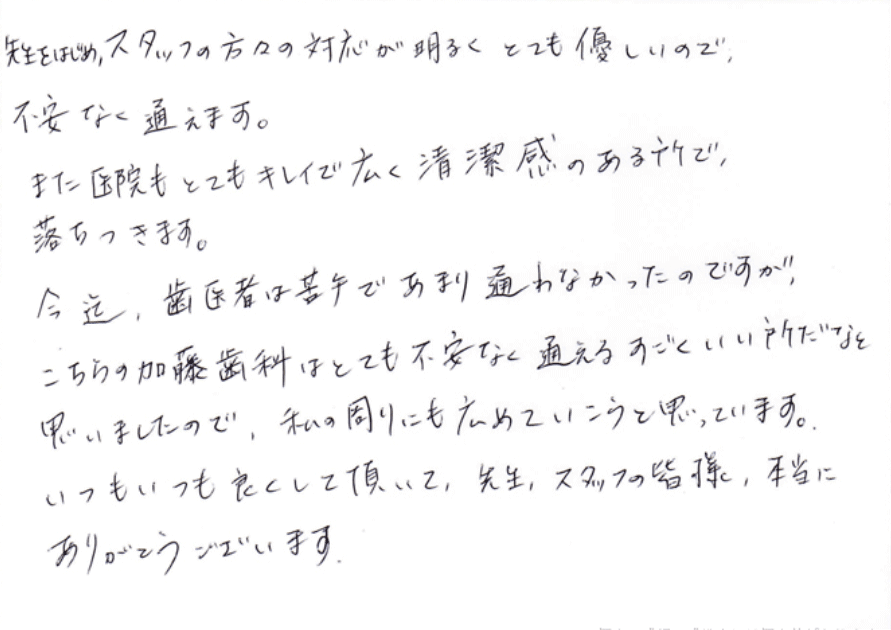 先生をはじめ,スタッフの方々の対応が明るくとても優しいので,
不安なく通えます。
また医院もとてもキレイで広く清潔感のある所で,
落ちつきます。
今迄,歯医者は苦手であまり通わなかったのですが,
こちらの加藤歯科はとても不安なく通えるすごくいい所だなと
思いましたので,私の周りにも広めていこうと思っています。
いつもいつも良くして頂いて,先生,スタッフの皆様,本当に
ありがとうございます.